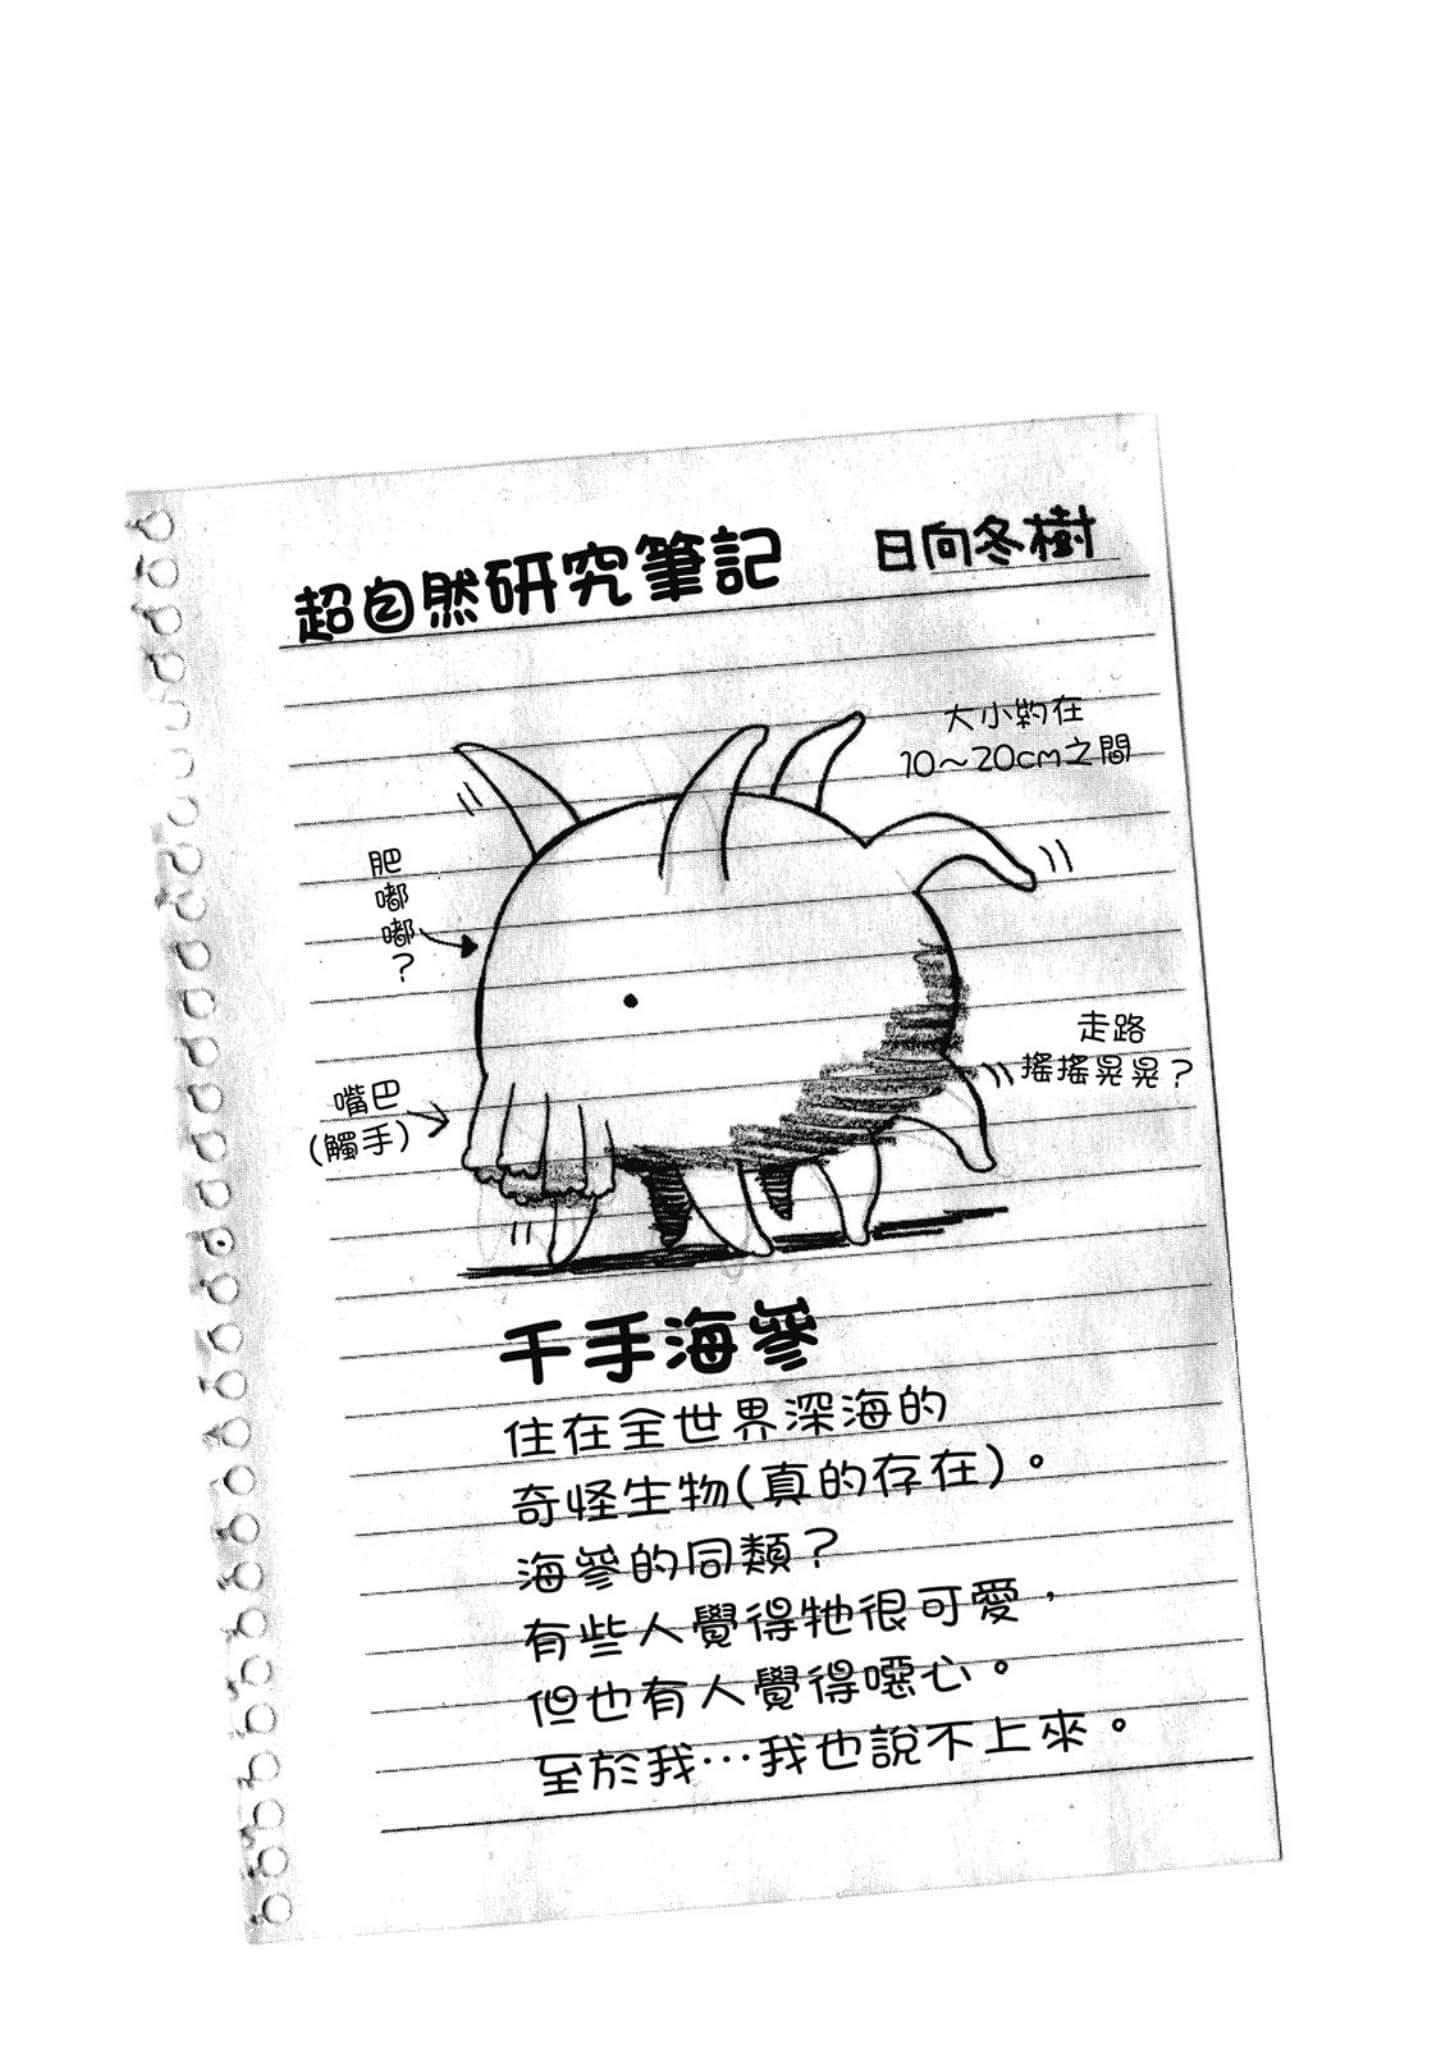 超自然研究筆記 日向冬樹
大小約在
10～20cm之間
肥嘟嘟？
走路
搖搖晃晃？
嘴巴
(觸手)
千手海參
住在全世界深海的
奇怪生物(真的存在)。
海參的同類？
有些人覺得牠很可愛，
但也有人覺得噁心。
至於我…我也說不上來。